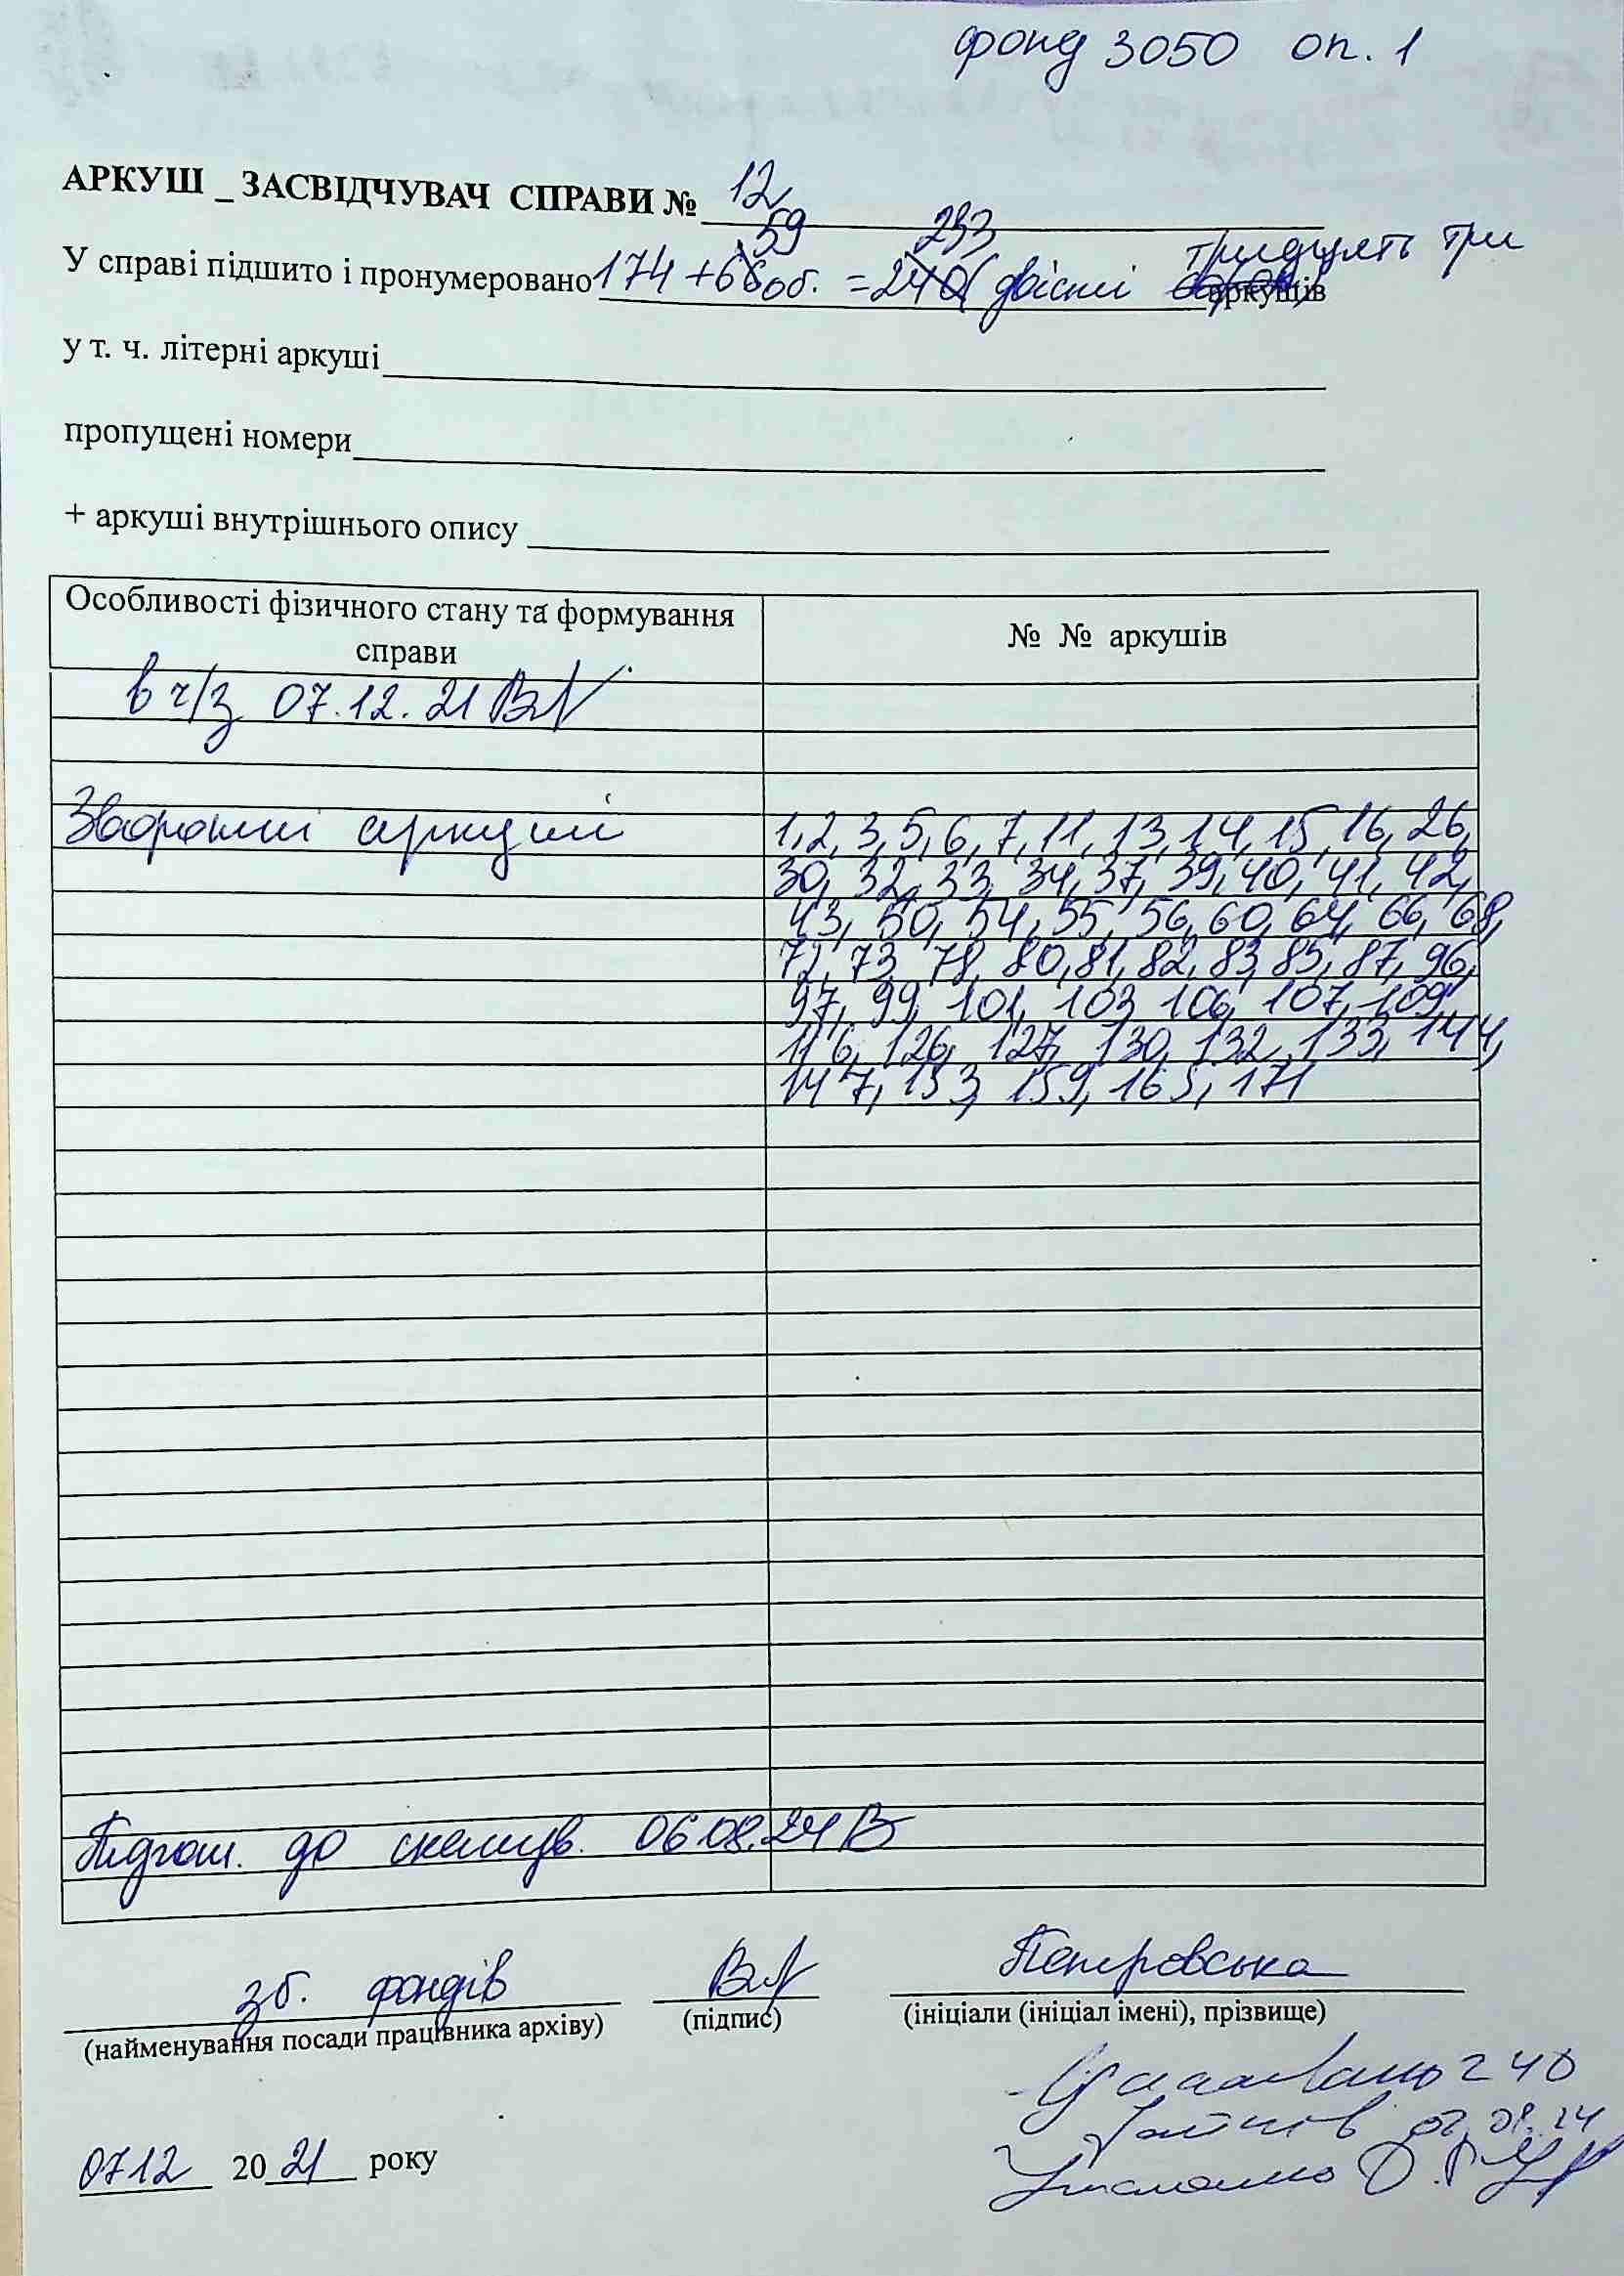 фонд 3050 оп. 1
АРКУШ _ ЗАСВІДЧУВАЧ СПРАВИ № 12
59 233 тридцять три
У справі підшито і пронумеровано 174 + 66 об. = 240 (двісті аркушів
у т. ч. літерні аркуші
пропущені номери
+ аркуші внутрішнього опису
Особливості фізичного стану та формування
справи
№ № аркушів
в ч/з 07.12.21
Зворотні аркуші
1, 2, 3, 5, 6, 7, 11, 13, 14, 15, 16, 26,
30, 32, 33, 34, 37, 39, 40, 41, 42,
43, 50, 54, 55, 56, 60, 64, 66, 68,
72, 73, 78, 80, 81, 82, 83, 85, 87, 96,
97, 99, 101, 103, 106, 107, 109,
116, 126, 127, 130, 132, 133, 144,
147, 153, 159, 165, 171
Підгот. до сканув. 06.08.24
зб. фондів Петровська
(найменування посади працівника архіву) (підпис) (ініціали (ініціал імені), прізвище)
240
07.08.24
0712 2021 року